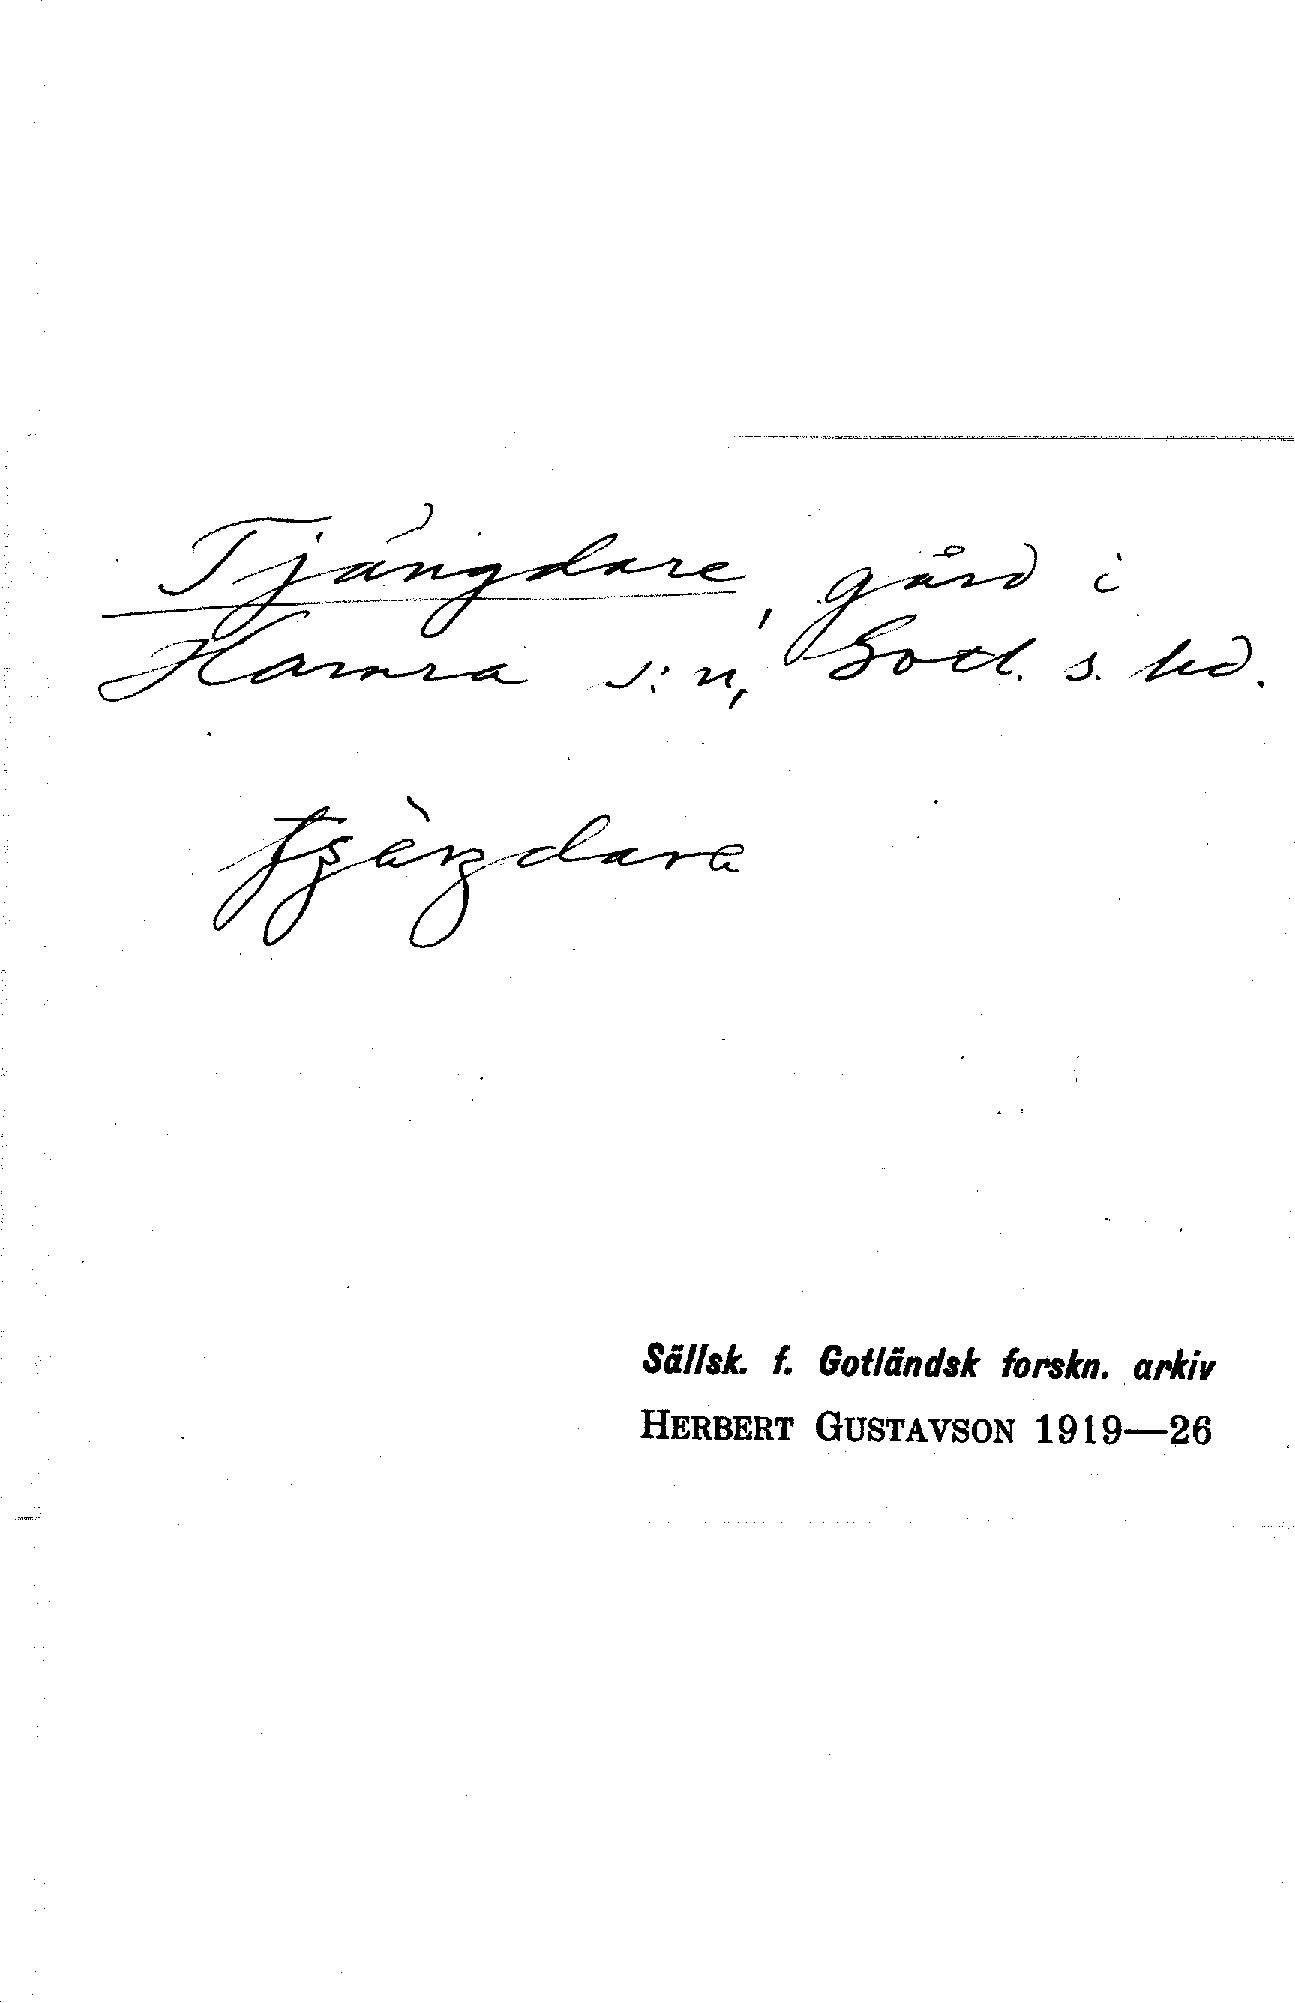 Tjängdare, gård i
Hamra s:n, Gotl. s. hd.
Sällsk. f. Gotländsk forskn. arkiv
HERBERT GUSTAVSON 1919—26